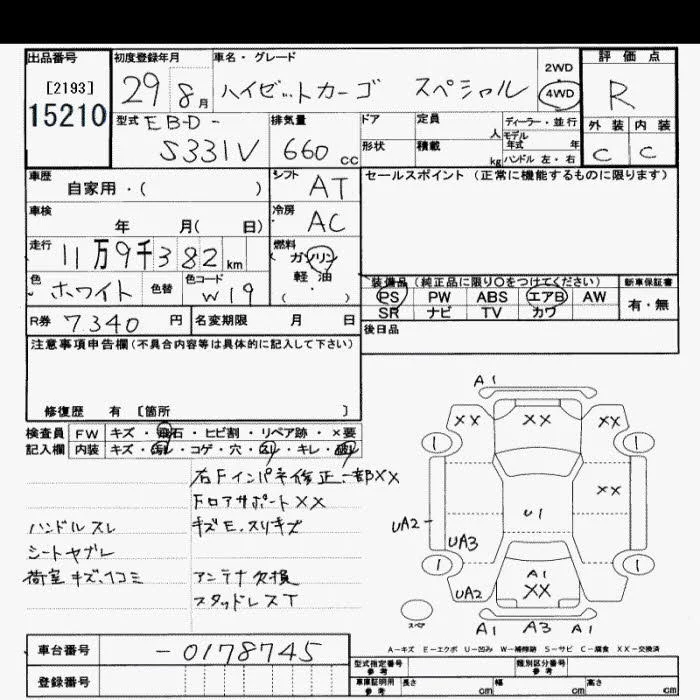 出品番号
[2193]
15210
初度登録年月
29 8月
車名・グレード
ハイゼットカーゴ スペシャル
2WD
4WD
評価点
R
外装 内装
C C
型式 EBD-
S331V
排気量
660 cc
ドア
定員 人
形状
積載 kg
ディーラー・並行
モデル年式 年
ハンドル 左・右
車歴
自家用・( )
シフト
AT
セールスポイント (正常に機能するものに限ります)
車検
年 月( 日)
冷房
AC
走行
11万9千382 km
燃料
ガソリン
軽油
( )
色
ホワイト
色替
色コード
W19
装備品 (純正品に限り○をつけてください)
PS PW ABS エアB AW
SR ナビ TV カワ
新車保証書
有・無
R券 7340 円
名変期限 月 日
後日品
注意事項申告欄(不具合内容等は具体的に記入して下さい)
修復歴 有 [箇所 ]
検査員 FW キズ・飛石・ヒビ割・リペア跡・×要
記入欄 内装 キズ・汚れ・コゲ・穴・スリ・キレ・破れ
右Fインパネ修正一部XX
FロアサポートXX
ハンドルスレ
キズE.スリキズ
シートヤブレ
荷室キズ、凹コミ
アンテナ欠損
スタッドレスT
A1
XX XX XX
1 1
XX
U1
UA2
UA3
1 1
A1
XX
UA2
スペア
A1 A3 A1
A-キズ E-エクボ U-凹み W-補修跡 S-サビ C-腐食 XX-交換済
車台番号
-0178745
登録番号
型式指定番号
参考
類別区分番号
参考
車庫証明用
参考
長さ cm
幅 cm
高さ cm